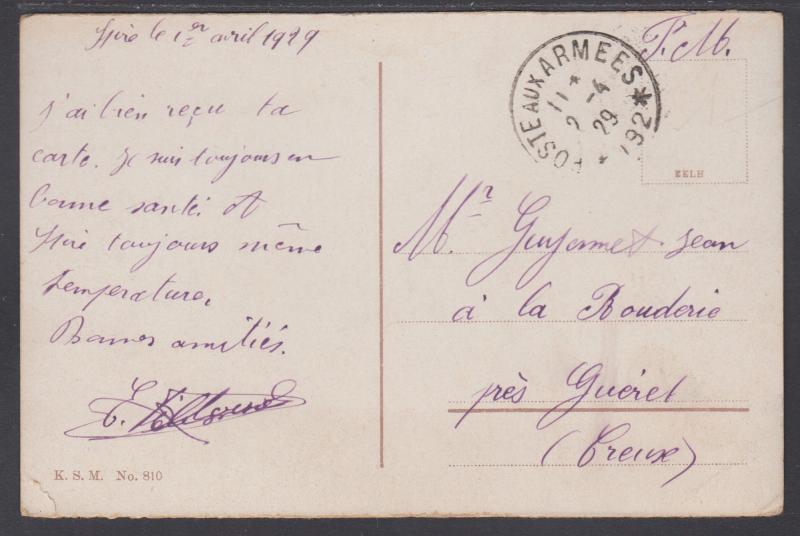 Spire le 1er avril 1929
J'ai bien reçu ta
carte. Je suis toujours en
bonne santé. A
Spire toujours même
température.
Bonnes amitiés.
K. S. M. No. 810
F. M.
POSTE AUX ARMEES
11
2 - 4
29
* 192 *
EELH
Mr Jean
à la Bouderie
près Guéret
(Creuse)